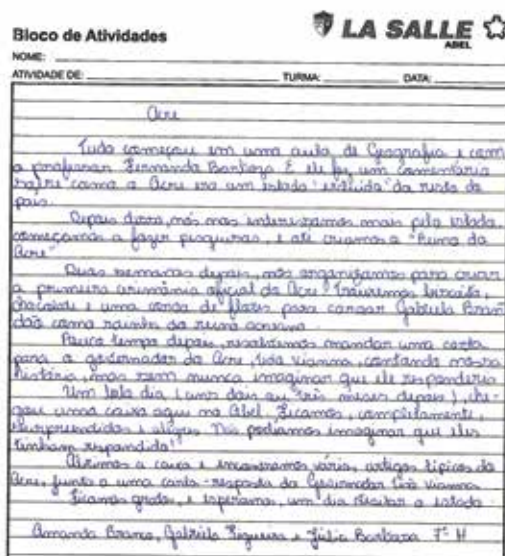 Bloco de Atividades
LA SALLE
ABEL
NOME:
ATIVIDADE DE: TURMA: DATA:
Acre
Tudo começou em uma aula de Geografia e com
o professor Fernando Barboza E ele fez um comentário
sobre como o Acre era um estado "excluído" do resto do
país.
Depois disso, nós nos interessamos mais pelo estado,
começamos a fazer pesquisas, e até criamos o "Reino do
Acre"
Duas semanas depois, nós organizamos para criar
a primeira cerimônia oficial do Acre. Trouxemos biscoito,
chocolate e uma coroa de flores para coroar Gabriela Bran
dão como rainha do reino acreano.
Pouco tempo depois, resolvemos mandar uma carta
para o governador do Acre, Tião Vianna, contando nossa
história, mas sem nunca imaginar que ele responderia
Um belo dia (uns dois ou três meses depois), che-
gou uma caixa aqui no Abel. Ficamos, completamente,
surpreendidos e alegres. Não podíamos imaginar que eles
tinham respondido!
Abrimos a caixa e encontramos vários artigos típicos do
Acre, junto a uma carta-resposta do Governador Tião Vianna
Ficamos gratos, e esperamos, um dia visitar o estado.
Amanda Branco, Gabriela Figueira e Júlia Barbosa 7º H